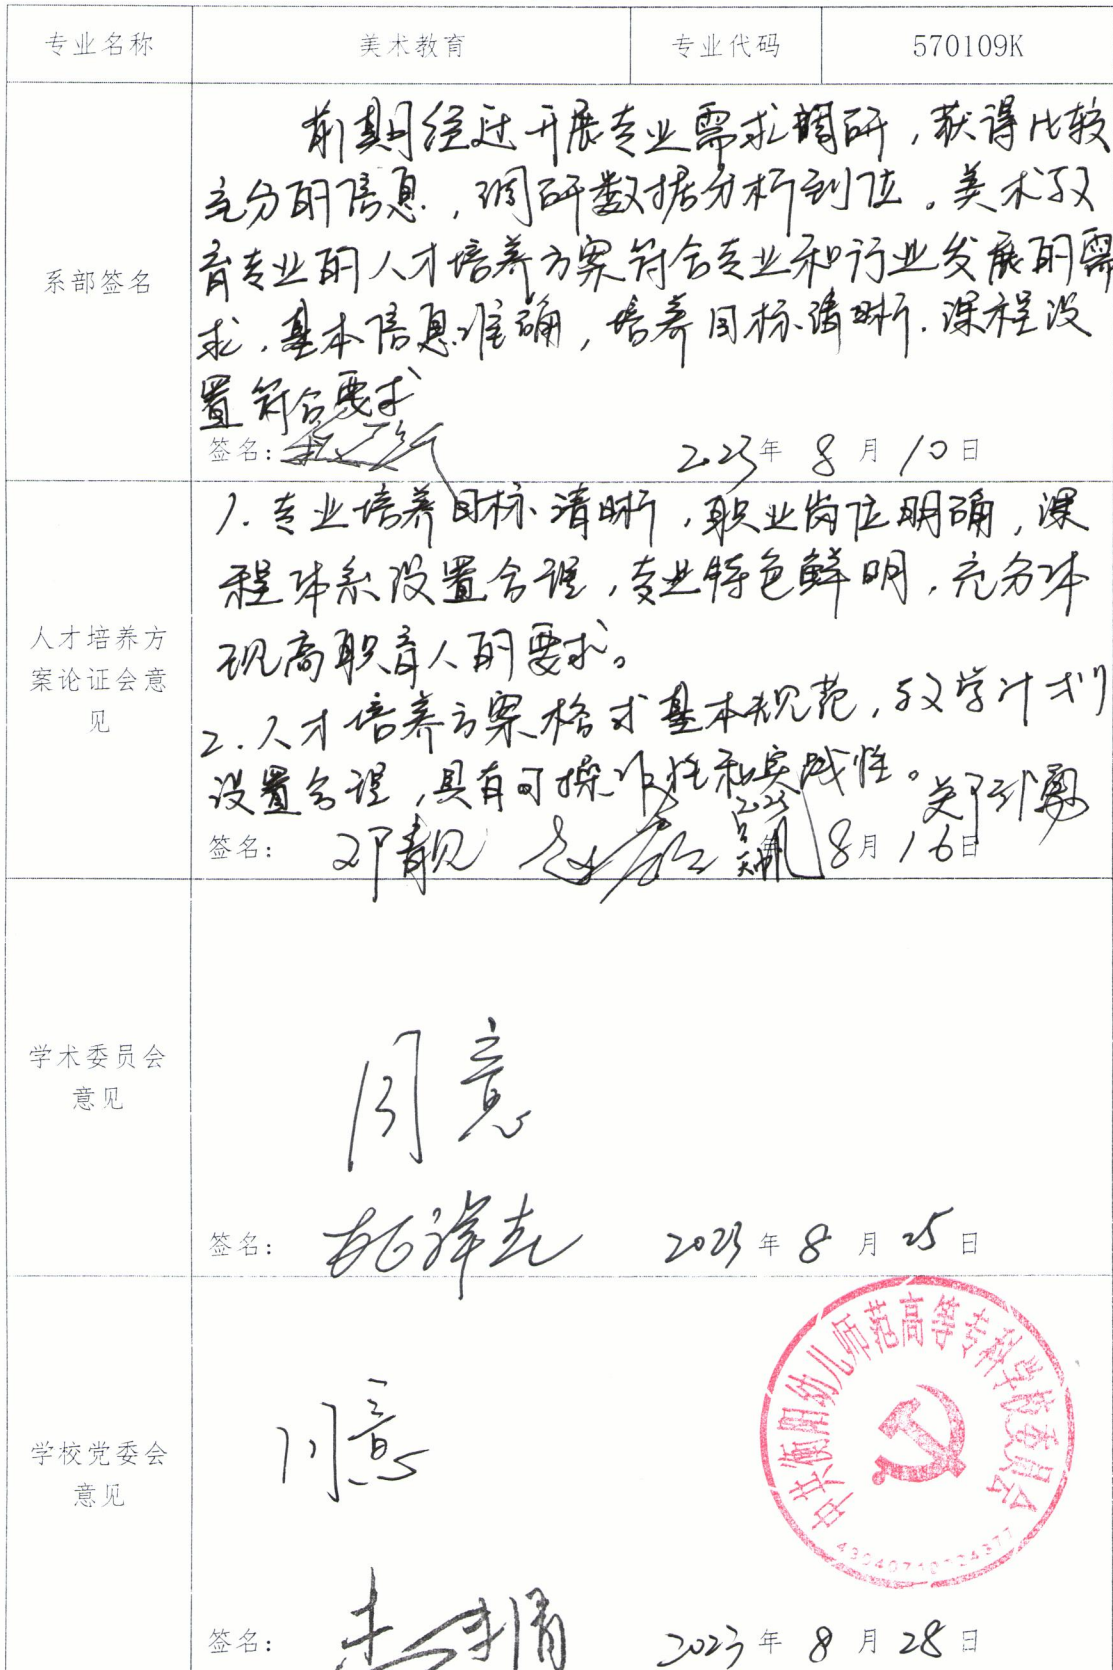 专业名称 美术教育 专业代码 570109K
系部签名
前期经过开展专业需求调研，获得比较
充分的信息，调研数据分析到位。美术教
育专业的人才培养方案符合专业和行业发展的需
求，基本信息准确，培养目标清晰，课程设
置符合要求
签名： 2023年 8月 10日
人才培养方
案论证会意
见
1. 专业培养目标清晰，职业岗位明确，课
程体系设置合理，专业特色鲜明，充分体
现高职育人的要求。
2. 人才培养方案格式基本规范，教学计划
设置合理，具有可操作性和实践性。
签名： 邓靓 2023 8月 16日
学术委员会
意见
同意
签名： 2023年 8月 25日
学校党委会
意见
同意
中共衡阳幼儿师范高等专科学校委员会
签名： 2023年 8月 28日